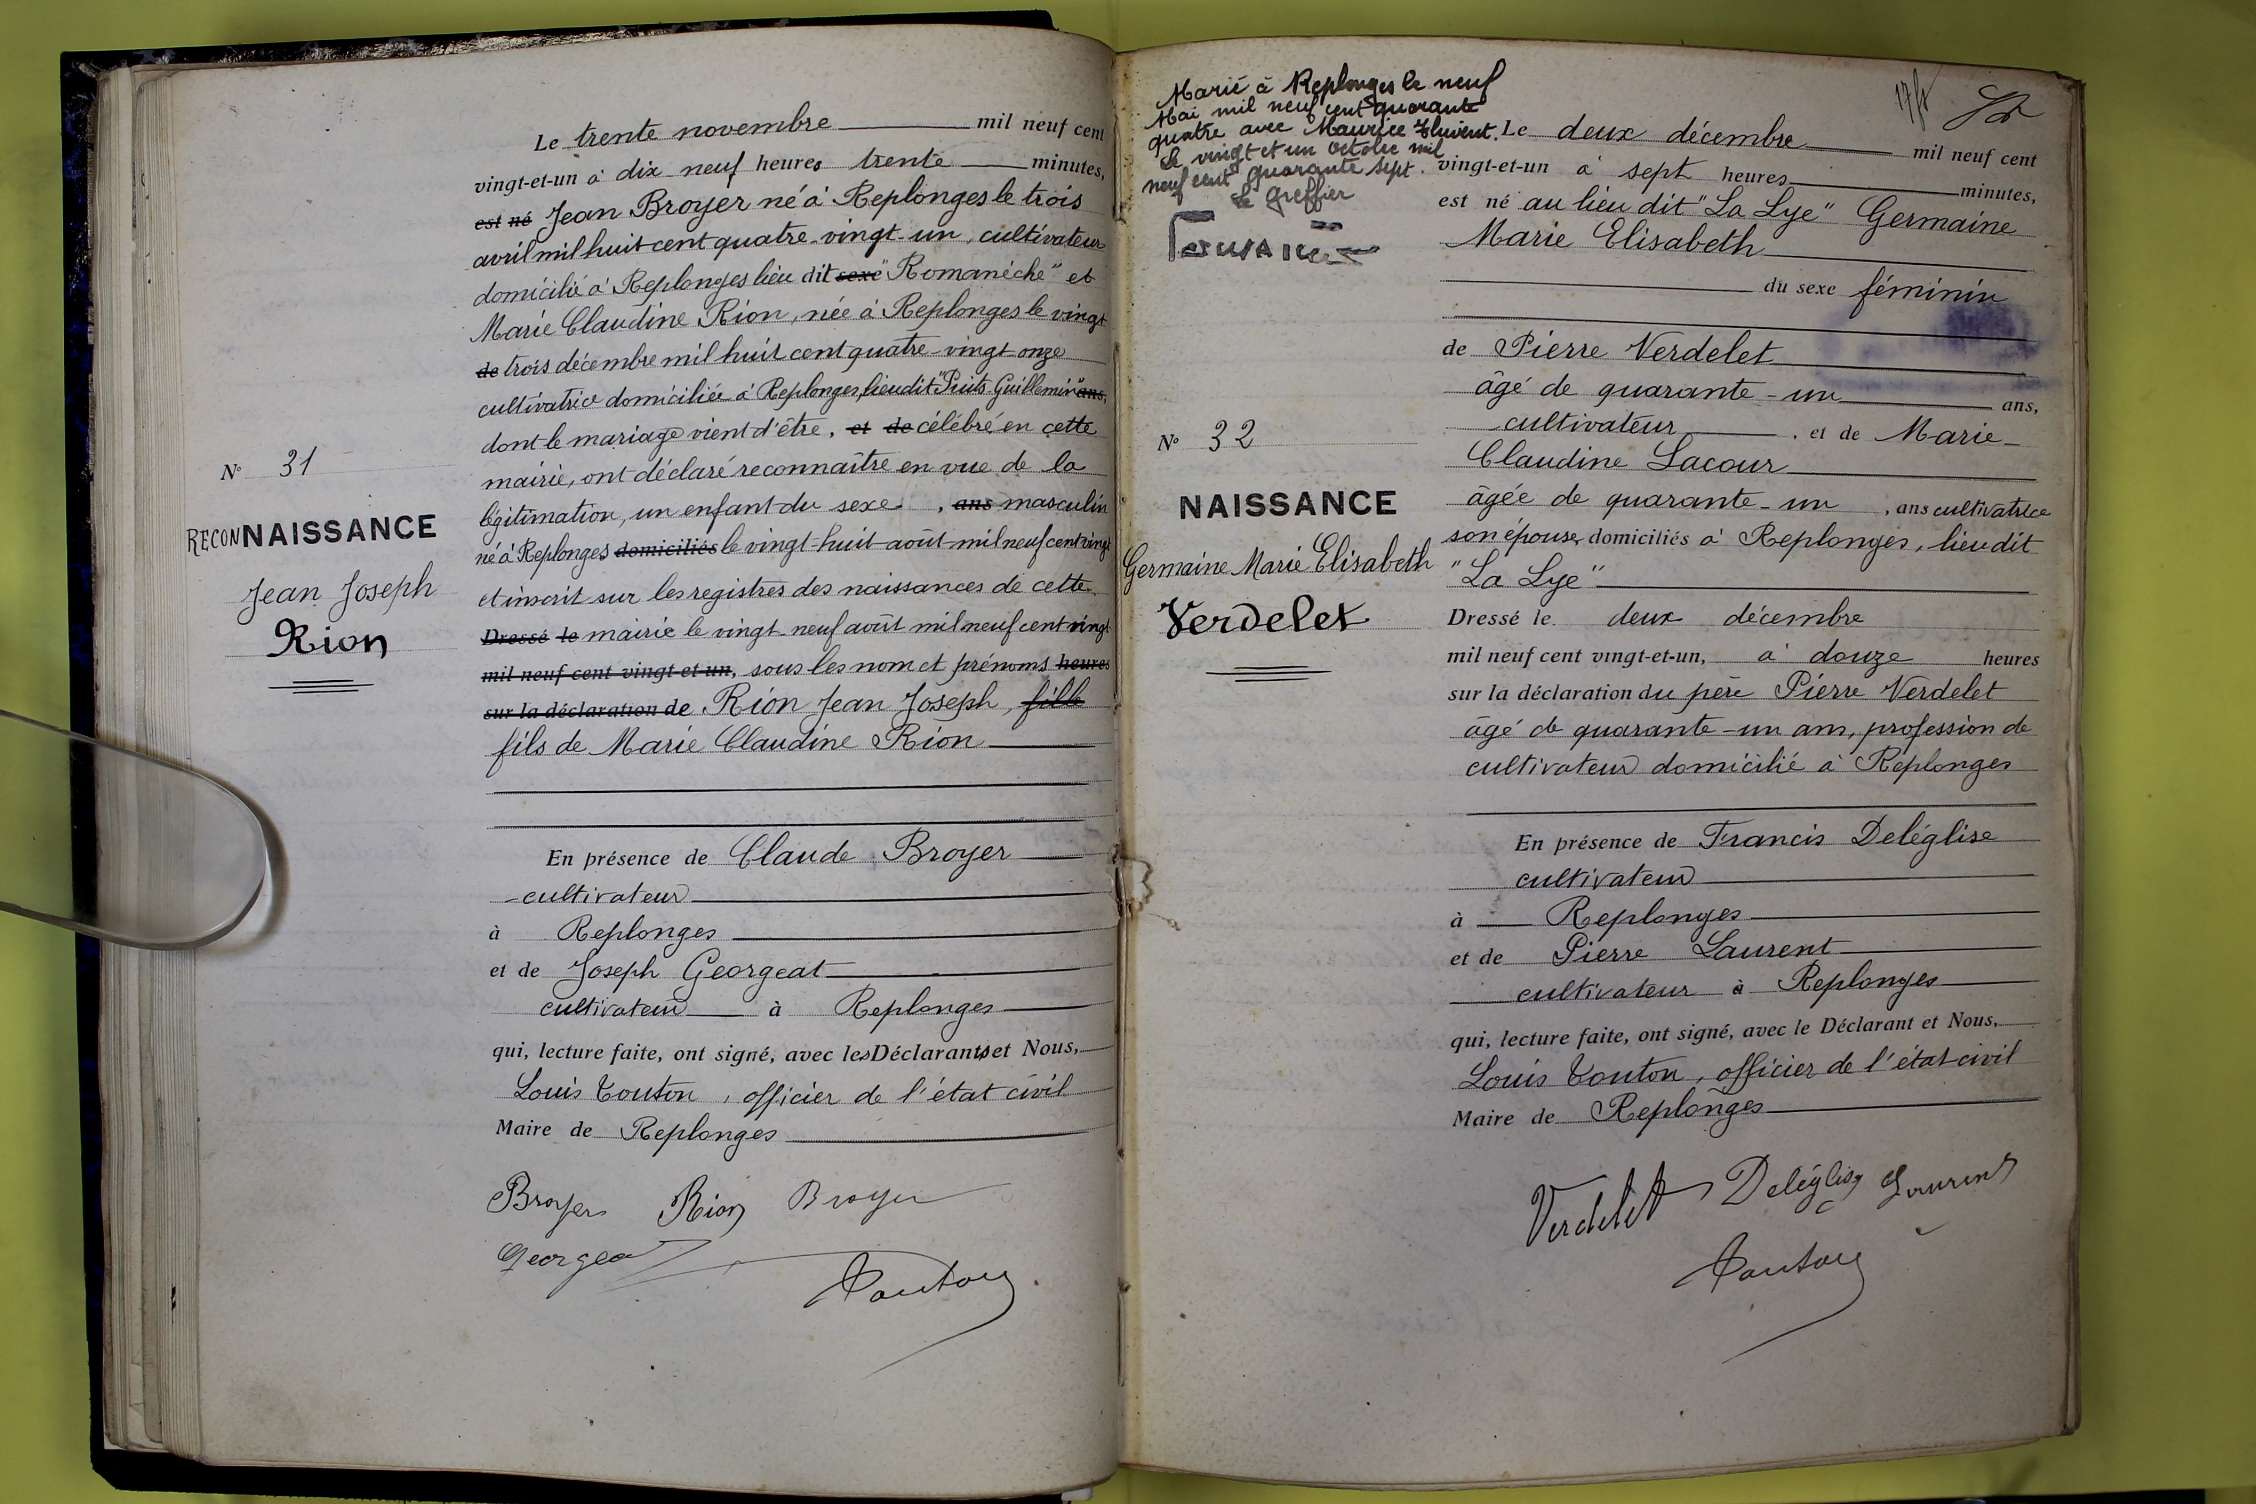 Le trente novembre mil neuf cent
vingt-et-un à dix neuf heures trente minutes,
est né Jean Broyer né à Replonges le trois
avril mil huit cent quatre-vingt-un, cultivateur
domicilié à Replonges lieu dit sexe "Romanèche" et
Marie Claudine Rion, née à Replonges le vingt
de trois décembre mil huit cent quatre-vingt onze
cultivatrice domiciliée à Replonges, lieu dit "Puits Guillemin" ans,
dont le mariage vient d'être, et de célébré en cette
mairie, ont déclaré reconnaître en vue de la
légitimation, un enfant du sexe , ans masculin
né à Replonges domiciliés le vingt-huit août mil neuf cent vingt
et inscrit sur les registres des naissances de cette
Dressé le mairie le vingt-neuf août mil neuf cent vingt
mil neuf cent vingt-et-un, sous les nom et prénoms heures
sur la déclaration de Rion Jean Joseph, fille
fils de Marie Claudine Rion
N° 31
RECONNAISSANCE
Jean Joseph
Rion
En présence de Claude Broyer
cultivateur
à Replonges
et de Joseph Georgeat
cultivateur à Replonges
qui, lecture faite, ont signé, avec les Déclarants et Nous,
Louis Touton, officier de l'état civil
Maire de Replonges
Broyer Rion Broyer
Georgeat
Touton
Marié à Replonges le neuf
Mai mil neuf cent quarante
quatre avec Maurice
Le vingt et un Octobre mil
neuf cent quarante sept.
Le Greffier
Le deux décembre mil neuf cent
vingt-et-un à sept heures minutes,
est né au lieu dit "La Lye" Germaine
Marie Elisabeth
du sexe féminin
de Pierre Verdelet
âgé de quarante-un ans,
cultivateur , et de Marie
Claudine Lacour
âgée de quarante-un , ans cultivatrice
son épouse, domiciliés à Replonges, lieu dit
"La Lye"
N° 32
NAISSANCE
Germaine Marie Elisabeth
Verdelet
Dressé le deux décembre
mil neuf cent vingt-et-un, à douze heures
sur la déclaration du père Pierre Verdelet
âgé de quarante-un ans, profession de
cultivateur domicilié à Replonges
En présence de Francis Deléglise
cultivateur
à Replonges
et de Pierre Laurent
cultivateur à Replonges
qui, lecture faite, ont signé, avec le Déclarant et Nous,
Louis Touton, officier de l'état civil
Maire de Replonges
Verdelet Deléglise Laurent
Touton